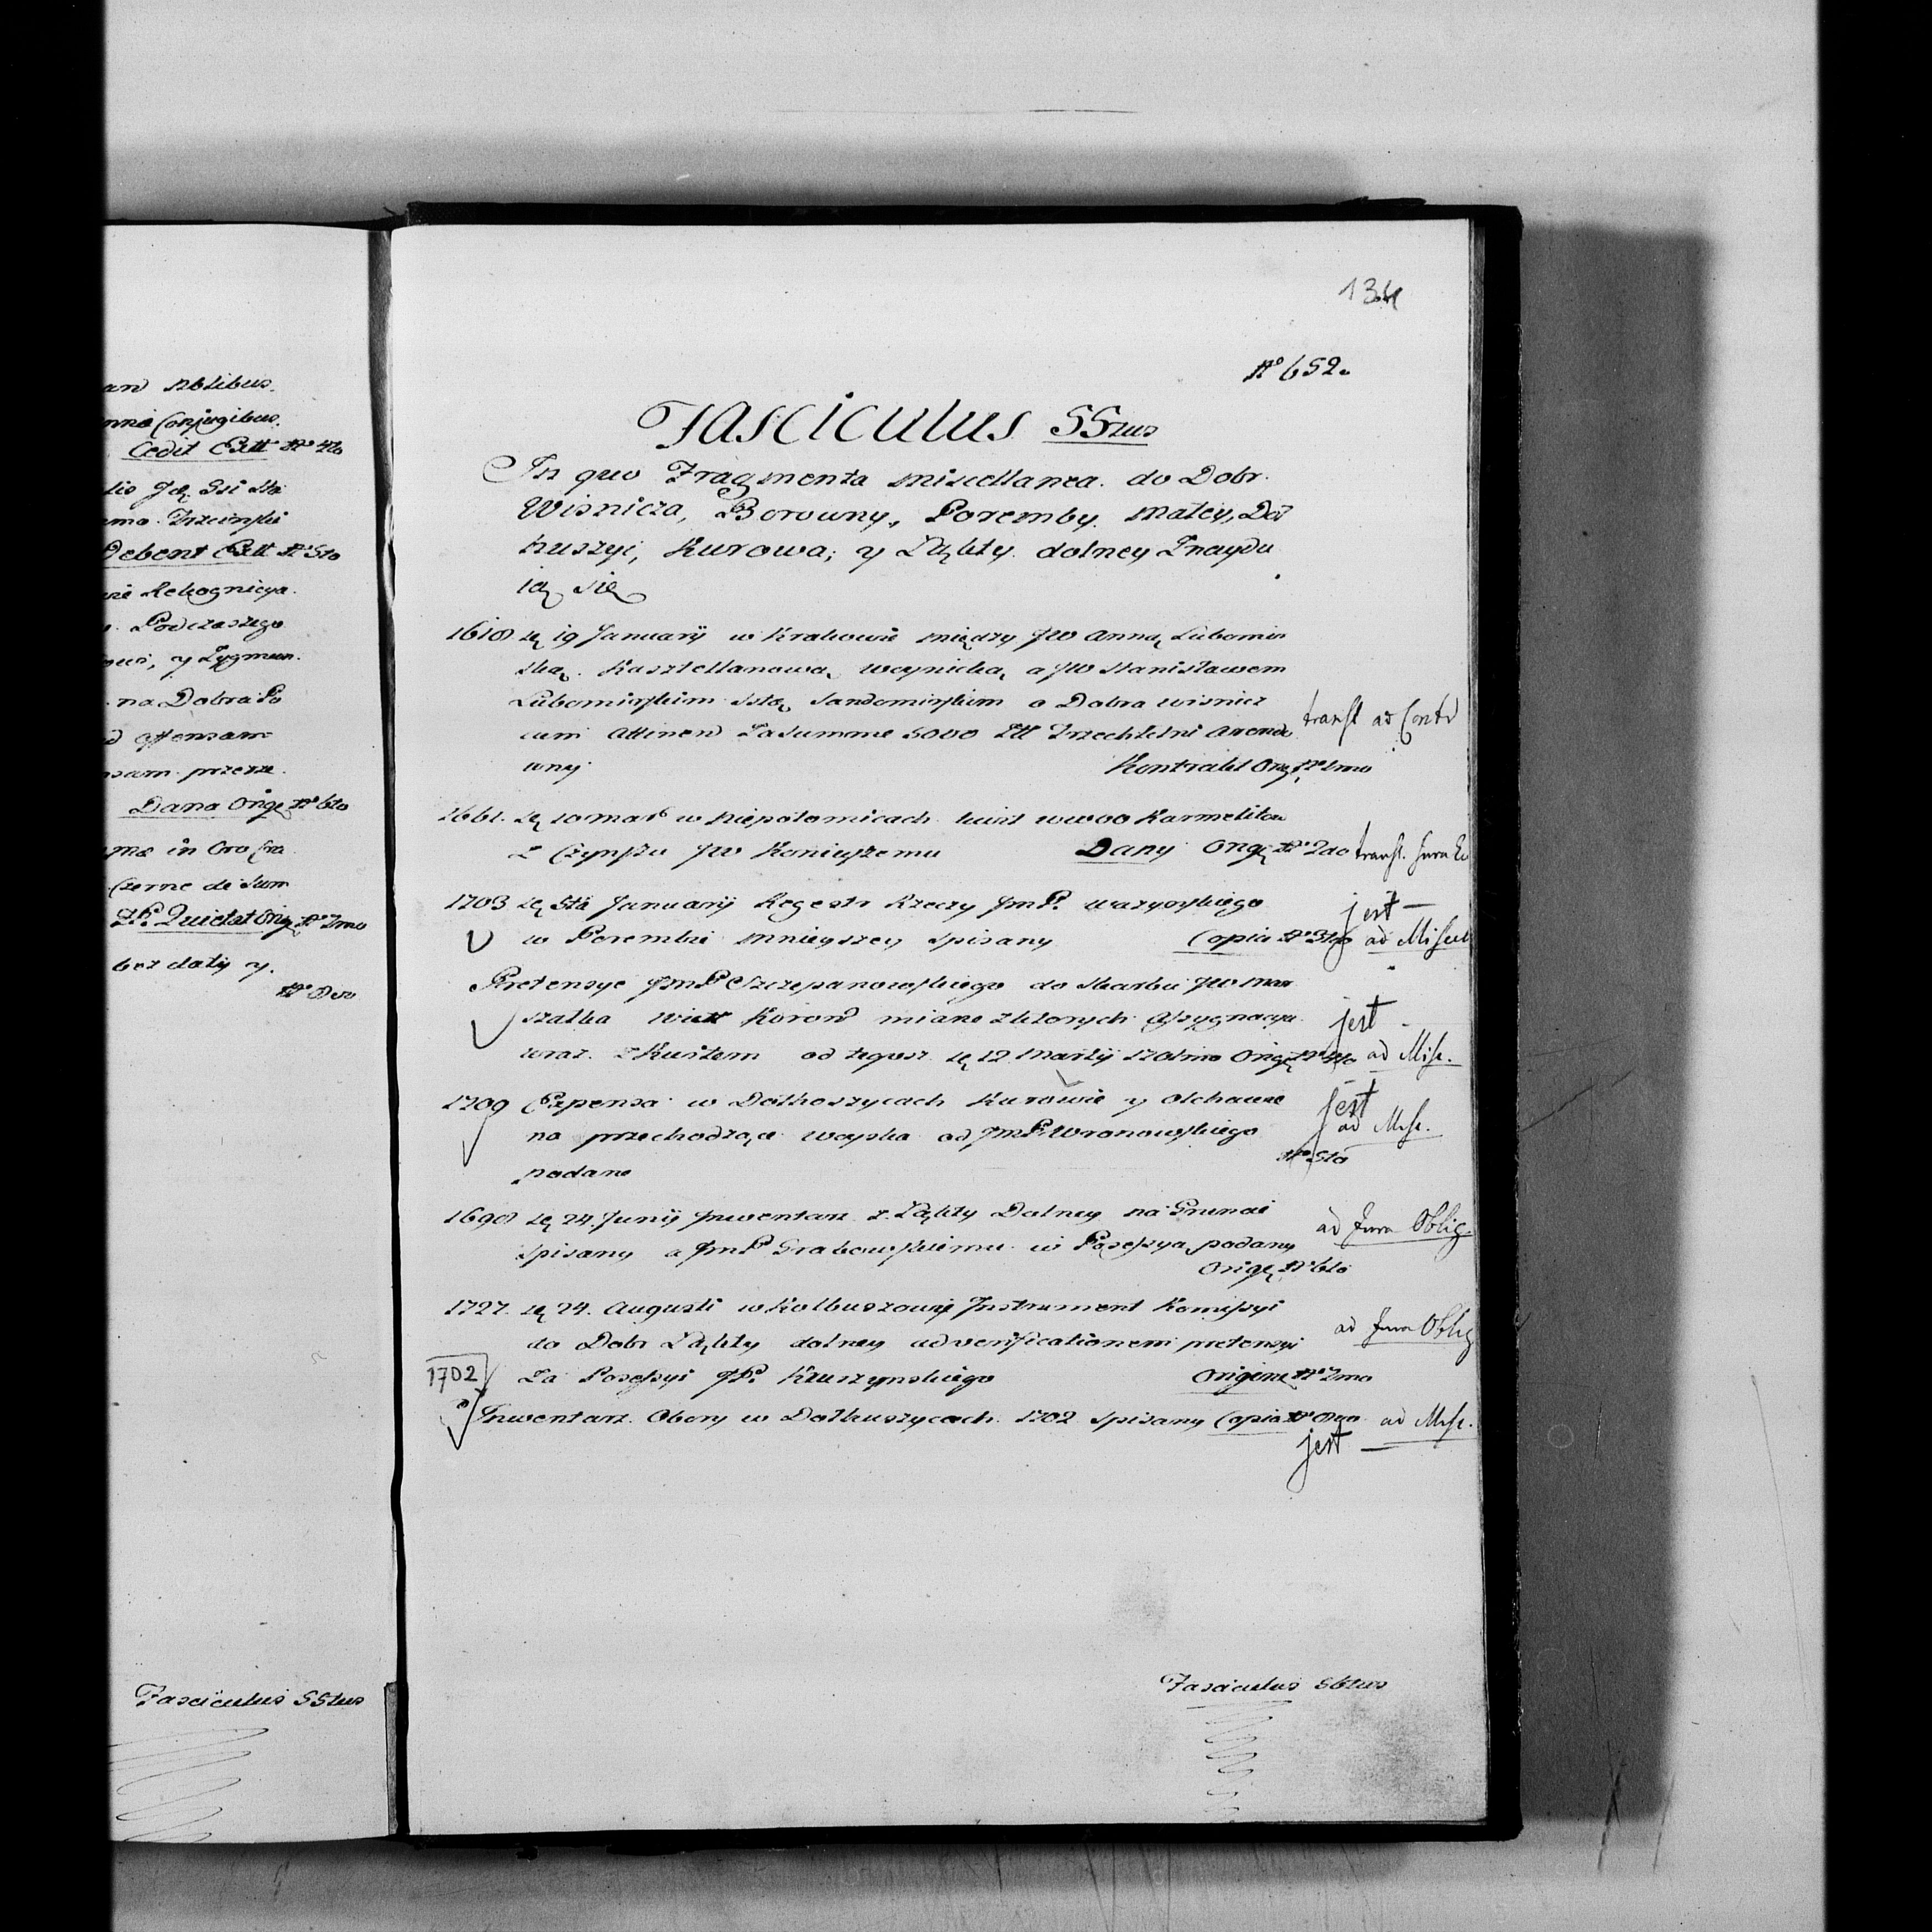 and Nblibus.
Conjugibus.
Cedit Extt Nº 4to
Debent Extt Nº 5to
Rekognicya.
Podczaszego
y Zygmun.
na Dobra Po
offensam
przeze.
Dana Orige Nº 6to
in Oro
Czerne de Sum
Quietat Orig Nº 7mo
bez daty y.
Nº 8vo
Fasciculus 55tus
134
Nº 652.
Fasciculus 55tus
In quo Fragmenta miscellanea. do Dobr.
Wisnicza, Borowny, Poremby. Małey, Doł
huszyc, Kurowa; y Łąkty. dolney Znaydu
ią się
1618 19 January w Krakowie między JW Anną Lubomir
ską. Kasztellanową woynicką, a JW Stanisławem
Lubomirskim Sstą Sandomirskim o Dobra wisnicz
cum Attinen Za Summe 5000 Trzechletni Arendo
wny
Kontrakt Orig. Nº 1mo
transl ad Contr
1661. 10 mar w Niepołomicach kwit WWOO Karmelitow
Z Czynszu JW Koniuszemu Dany Orig Nº 2do
transl. Jura
1703 5ta January Regestr Rzeczy JmP.
w Porembie mnieyszey spisany Copia Nº 3tio
jest —
ad Miscel
Pretensye JmP Szczepanowskiego do Skarbu JW Mar
szałka Wielk Koron miane złożonych Assygnacya
wraz. z Kwitem od tegosz 12 Marty Orig Nº 4to
jest -
ad Misc.
1709 Expensa w Dołhoszycach Kurowie y Olchawie
na przechodzące woyska od JmP. Wronowskiego
podane
Nº 5to
jest
ad Misc.
1698 24. Juny Inwentarz z. Łąkty Dolney na Gruncie
spisany a JmP Grabowskiemu w Possessyą podany
Orige Nº 6to
ad Jura Oblig.
1727. 24. Augusti w Kolbuszowy Instrument Komissyi
do Dobr Łąkty dolney ad verificationem pretensyi
1702
Za Possessyi JP. Kruszynskiego Origine Nº 7mo
ad Jura Oblig
Inwentarz. Obory w Dołhuszycach. 1702 spisany Copia Nº 8vo
ad Misc.
jest —
Fasciculus 56tus